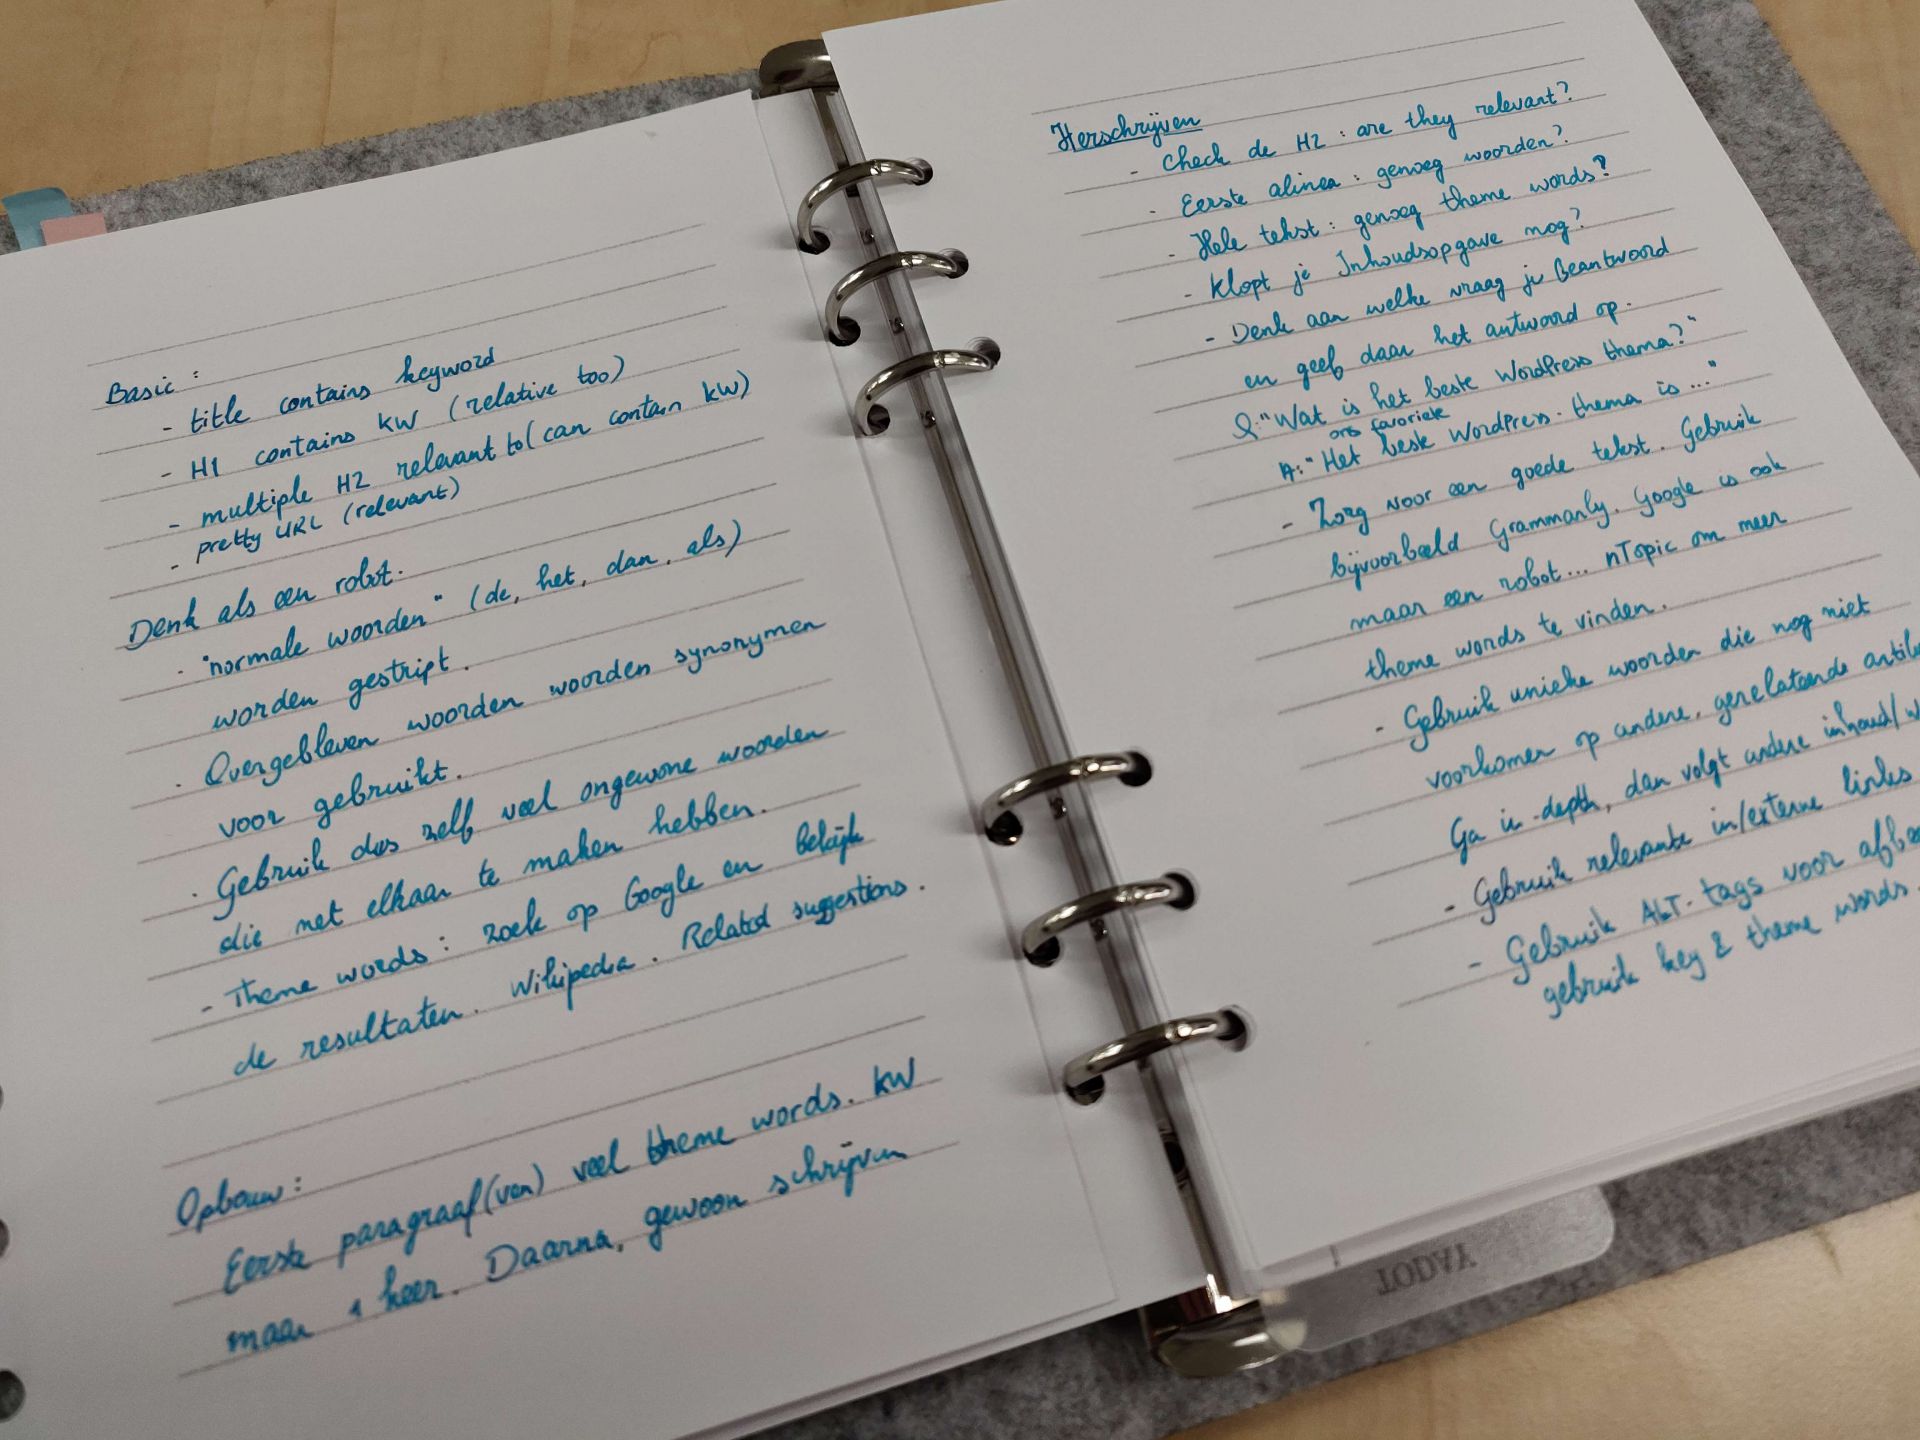 Basic :
- title contains keyword
- H1 contains KW (relative too)
- multiple H2 relevant to (can contain KW)
- pretty URL (relevant)
Denk als een robot.
- "normale woorden" (de, het, dan, als)
worden gestript.
- Overgebleven woorden woorden synonymen
voor gebruikt.
- Gebruik dus zelf veel ongewone woorden
die met elkaar te maken hebben.
- Theme words : zoek op Google en bekijk
de resultaten. Wikipedia. Related suggestions.
Opbouw :
Eerste paragraaf(ven) veel theme words. KW
maar 1 keer. Daarna, gewoon schrijven
Herschrijven
- Check de H2 : are they relevant?
- Eerste alinea : genoeg woorden?
- Hele tekst : genoeg theme words?
- Klopt je Inhoudsopgave nog?
- Denk aan welke vraag je Beantwoord
en geef daar het antwoord op.
Q: "Wat is het beste WordPress thema?"
ons favoriete
A: "Het beste WordPress-thema is ..."
- Zorg voor een goede tekst. Gebruik
bijvoorbeeld Grammarly. Google is ook
maar een robot... nTopic om meer
theme words te vinden.
- Gebruik unieke woorden die nog niet
voorkomen op andere, gerelateerde
Ga in-depth, dan volgt andere inhoud/
- Gebruik relevante in/externe links
- Gebruik ALT-tags voor
gebruik key & theme words.
TODAY